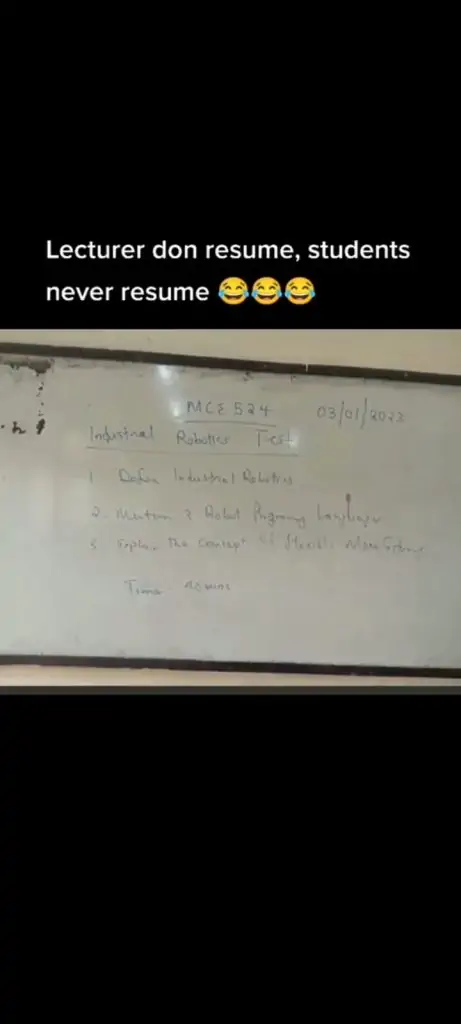 Lecturer don resume, students
never resume 😂😂😂
MCE 524
03/01/2023
Industrial Robotics Test
1 Define Industrial Robotics
2. Mention 3 Robot Programing Languages
3 Explain the concept of flexible
Time